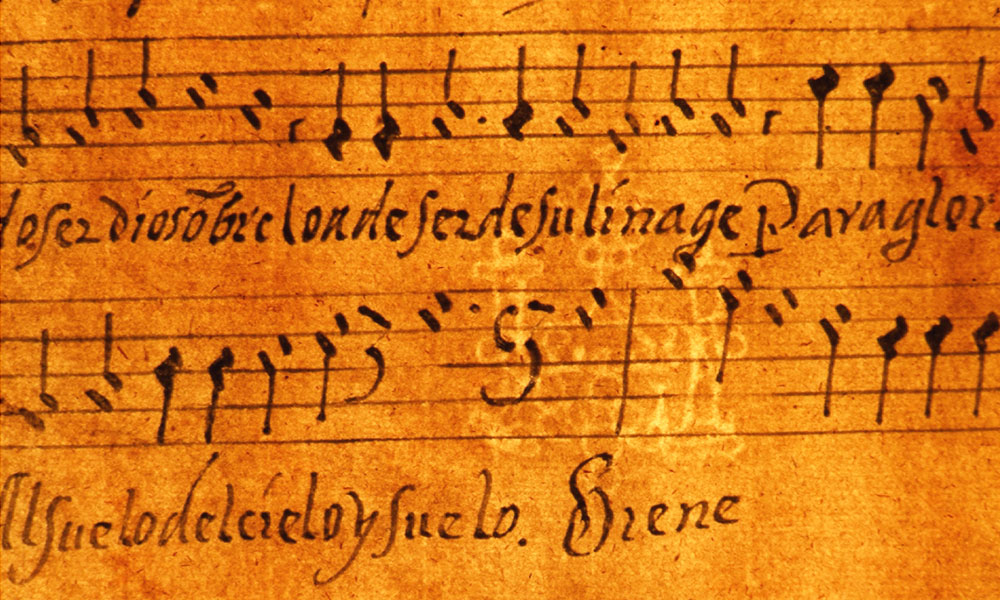 do ser dios õbre londe ser de su linage Para glori
Al suelo del cielo y suelo. Viene